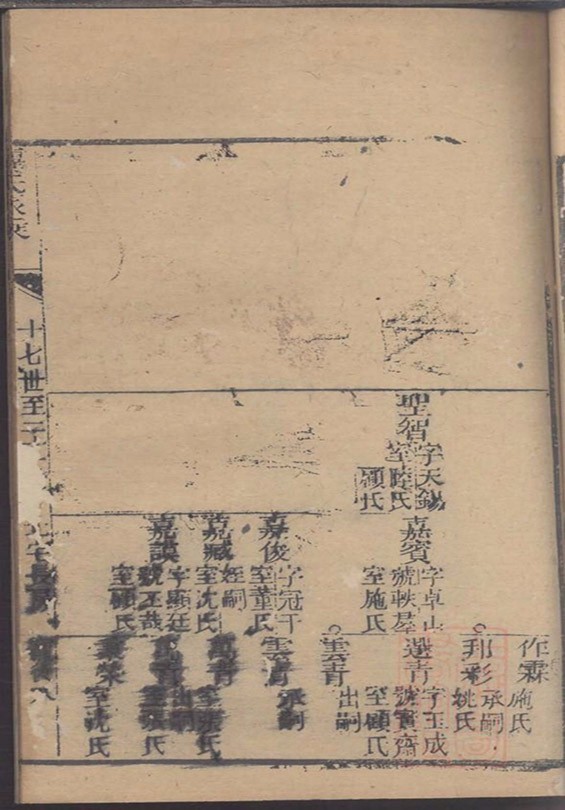 十七世至二十
聖智
字天錫
室陸氏
顧氏
嘉賓
字卓山
號映星
室施氏
嘉俊
字冠千
室董氏
嘉臧
姪嗣
室沈氏
嘉謨
字顯廷
號玉哉
室顧氏
作霖
施氏
邦彩
承嗣
姚氏
選青
字玉成
號寶齋
室顧氏
雲青
出嗣
雲青
承嗣
萬青
室張氏
出嗣
室張氏
室沈氏